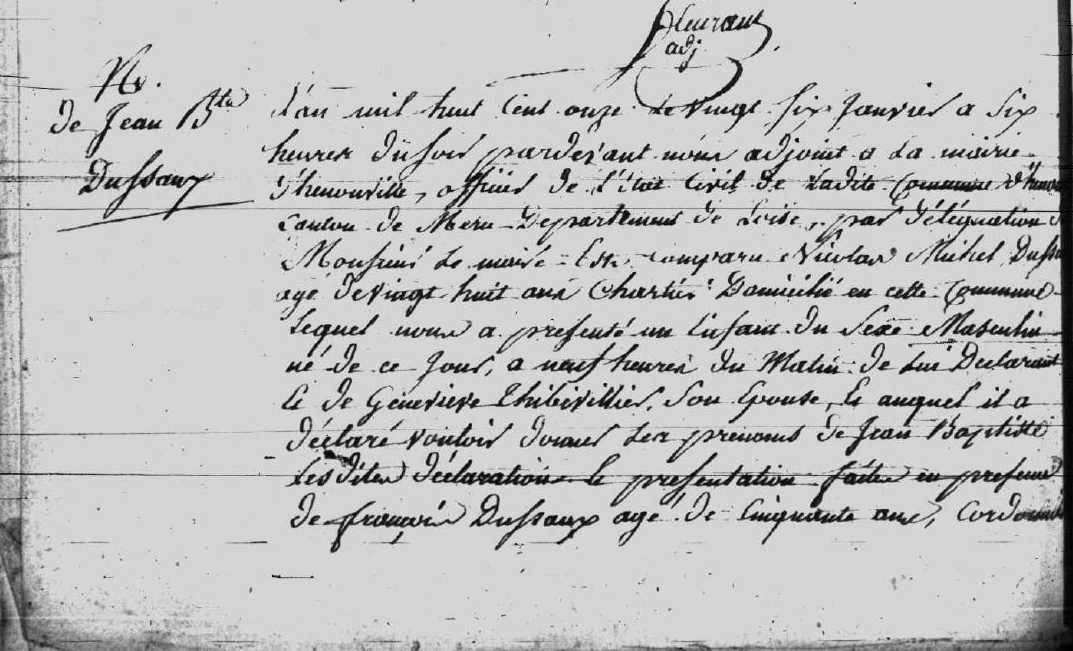 adj
N.
de Jean Bte
Dussaux
L'an mil huit cent onze le vingt six Janvier a six
heures du soir pardevant nous adjoint a la mairie
d'henonville, officier de l'état Civil de Ladite Commune d'heno
Canton de Meru Departement de Loise, par délégation
Monsieur le maire Est comparu Nicolas Michel Dussa
agé de vingt huit ans Chartier Domicilié en cette Commune
Lequel nous a presenté un Enfant du Sexe Masculin
né de ce Jour, a neuf heures du Matin de lui Declarant
Et de Genevieve Thibivilliers, Son Epouse, Et auquel il a
déclaré vouloir donner Les prenoms de Jean Baptiste
Les dites déclaration Et presentation faites en presence
de françois Dussaux agé de Cinquante ans, Cordonnie